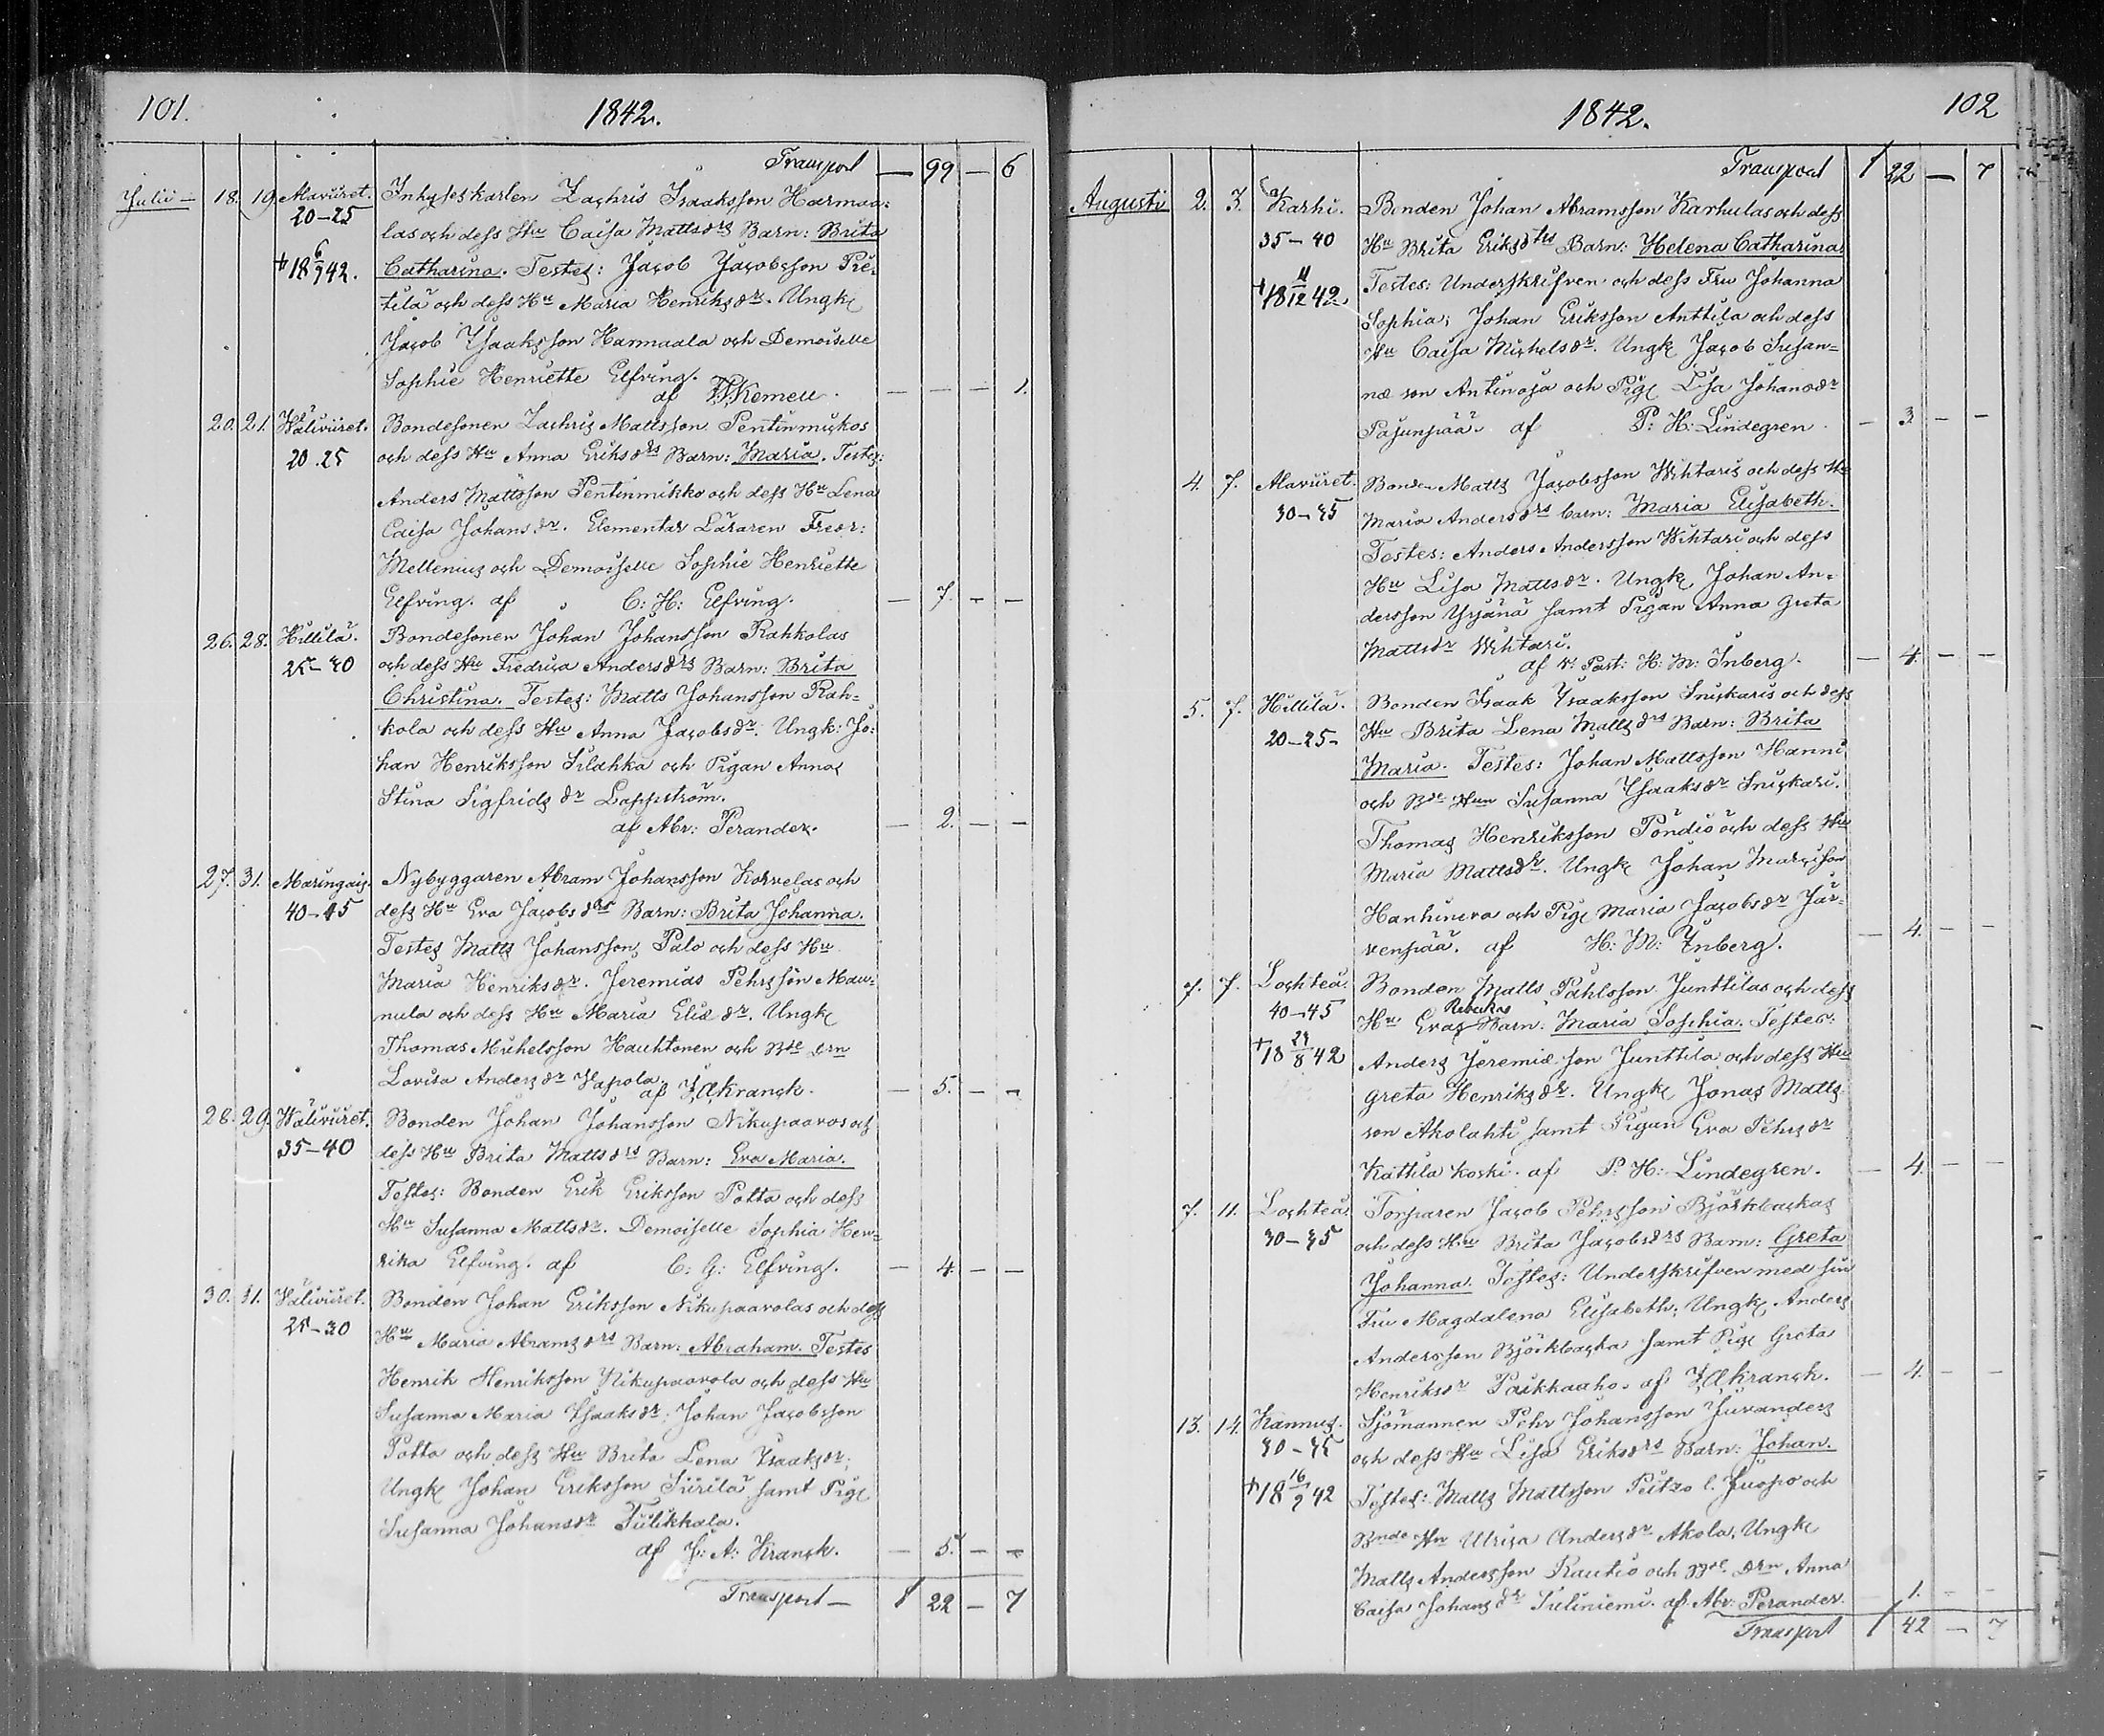 101.
1842.
Transport — 99 — 6
Julii — 18. 19. Alaviiret. Inhyseskarlen Zachris Isaaksson Harmaa-
20-25 las och dess Hu Caisa Mattsdrs Barn: Brita
† 18 6/9 42. Catharina. Testes: Jacob Jacobsson Pie-
tilä och dess Hu Maria Henriksdr. Ungk
Jacob Isaaksson Hannaala och Demoiselle
Sophie Henriette Elfving.
af Kemell. — — — 1.
20. 21. Wäliviiret. Bondesonen Zachris Mattsson Pentinmickos
20.25 och dess Hu Anna Eriksdrs Barn: Maria. Testes:
Anders Mattsson Pentinmikko och dess Hu Lena
Caisa Johansdr. Elementar Läraren Fredr:
Mellenius och Demoiselle Sophie Henriette
Elfving. af C: H: Elfving. — 7. — —
26. 28. Hillilä. Bondesonen Johan Johansson Rahkolas
25-30 och dess Hu Fredrica Andersdrs Barn: Brita
Christina. Testes: Matts Johansson Rah-
kola och dess Hu Anna Jacobsdr. Ungk: Jo-
han Henriksson Silahka och Pigan Anna
Stina Sigfridsdr Lappström.
af Abr: Perander. — 2. — —
27. 31. Maringais. Nybyggaren Abram Johansson Korvelas och
40-45 dess Hu Eva Jacobsdrs Barn: Brita Johanna.
Testes Matts Johansson Palo och dess Hu
Maria Henriksdr. Jeremias Pehrsson Mau-
nula och dess Hu Maria Eliædr. Ungk
Thomas Michelsson Hauhtonen och Bde Drn
Lovisa Andersdr Yapola
af Z A Kranck. — 5. — —
28. 29. Wäliviiret. Bonden Johan Johansson Nikupaavos och
35-40 dess Hu Brita Mattsdrs Barn: Eva Maria.
Testes: Bonden Erik Eriksson Potta och dess
Hu Susanna Mattsdr. Demoiselle Sophia Hen-
rika Elfving. af C: G: Elfving. — 4. — —
30. 31. Wäliviiret. Bonden Johan Eriksson Nikupaavolas och dess
25-30 Hu Maria Abramsdrs Barn: Abraham. Testes
Henrik Henriksson Nikupaavola och dess Hu
Susanna Maria Isaaksdr; Johan Jacobsson
Potta och dess Hu Brita Lena Isaaksdr;
Ungk Johan Eriksson Siirilä samt Pige
Susanna Johansdr Tulikkala.
af Z: A: Kranck. — 5. — —
Transport — 1 22 — 7
1842.
102
Transport 1 22 — 7
Augusti 2. 3. Karhi. Bonden Johan Abramsson Karhulas och dess
35-40 Hu Brita Eriksdtrs Barn: Helena Catharina
† 18 11/12 42 Testes: Underskrifven och dess Fru Johanna
Sophia; Johan Eriksson Anttila och dess
Hu Caisa Michelsdr. Ungk Jacob Susan-
næ son Antinoja och Pige Lisa Johansdr
Pajunpää. af P: H: Lindegren. — 3 — —
4. 7. Alaviiret. Bonden Matts Jacobsson Wihtaris och dess Hu
30-35 Maria Andersdrs barn: Maria Elisabeth.
Testes: Anders Andersson Wihtari och dess
Hu Lisa Mattsdr. Ungk Johan An-
dersson Yrjänä samt Pigan Anna Greta
Mattsdr Wihtari.
af v: Past: H: M: Inberg. — 4. — —
5. 7. Hillilä. Bonden Isaak Isaaksson Snickaris och dess
20-25- Hu Brita Lena Mattsdrs Barn: Brita
Maria. Testes: Johan Mattsson Hanni
och Bde Hun Susanna Isaaksdr Snickari.
Thomas Henriksson Pöndiö och dess Hu
Maria Mattsdr. Ungk Johan Marcisson
Hanhineva och Pige Maria Jacobsdr Jär-
venpää. af H: M: Inberg. — 4. — —
7. 7. Lochteå. Bonden Matts Påhlsson Junttilas och dess
40-45 Hu Evas Rebeckas Barn: Maria Sophia. Testes:
† 18 24/8 42 Anders Jeremiæ son Junttila och dess Hu
Greta Henriksdr. Ungk Jonas Matts-
son Akolahti samt Pigan Eva Pehrsdr
Kattila koski. af P. H: Lindegren. — 4. — —
7. 11. Lochteå. Torparen Jacob Pehrsson Björkbackas
30-35 och dess Hu Brita Jacobsdrs Barn: Greta
Johanna. Testes: Underskrifven med sin
Fru Magdalena Elisabeth; Ungk Anders
Andersson Björkbacka samt Pige Greta
Henriksdr Paukkaaho. af Z A Kranck. — 4. — —
13. 14. Kannus. Sjömannen Pehr Johansson Juvanders
30-35 och dess Hu Lisa Eriksdrs Barn: Johan.
† 18 16/9 42 Testes: Matts Mattsson Peitzo l. Juopo och
Bnde Hu Ulrica Andersdr Akola, Ungk
Matts Andersson Rautio och Bde Drn Anna
Caisa Johansdr Tuliniemi. af Abr: Perander. 1. — —
Transport 1 42 — 7